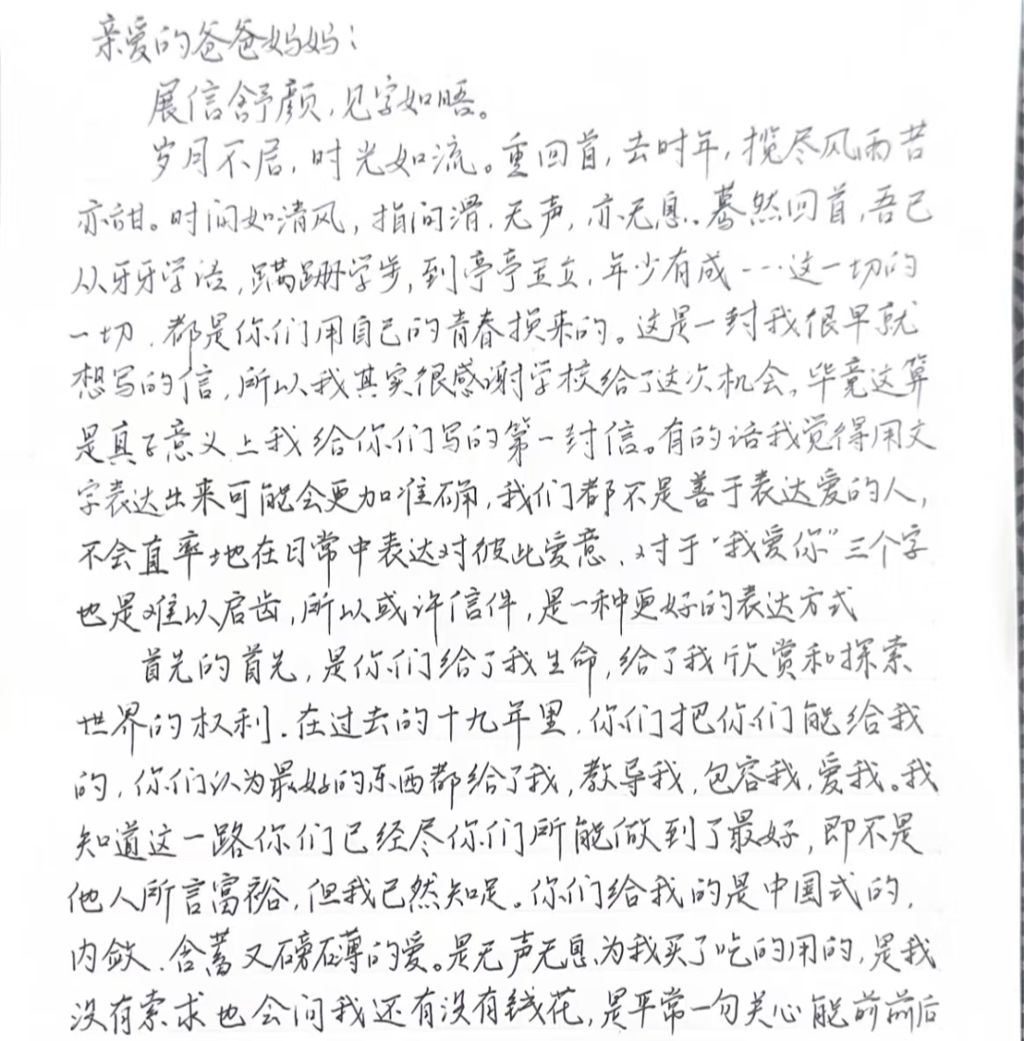 亲爱的爸爸妈妈：
展信舒颜，见字如晤。
岁月不居，时光如流。重回首，去时年，揽尽风雨苦
亦甜。时间如清风，指间滑，无声，亦无息。蓦然回首，吾已
从牙牙学语，蹒跚学步，到亭亭玉立，年少有成……这一切的
一切，都是你们用自己的青春换来的。这是一封我很早就
想写的信，所以我其实很感谢学校给了这次机会，毕竟这算
是真正意义上我给你们写的第一封信。有的话我觉得用文
字表达出来可能会更加准确，我们都不是善于表达爱的人，
不会直率地在日常中表达对彼此爱意，对于“我爱你”三个字
也是难以启齿，所以或许信件，是一种更好的表达方式
首先的首先，是你们给了我生命，给了我欣赏和探索
世界的权利。在过去的十九年里，你们把你们能给我
的，你们认为最好的东西都给了我，教导我，包容我，爱我。我
知道这一路你们已经尽你们所能做到了最好，即不是
他人所言富裕，但我已然知足。你们给我的是中国式的，
内敛、含蓄又磅礴的爱。是无声无息为我买了吃的用的，是我
没有索求也会问我还有没有钱花，是平常一句关心能前前后